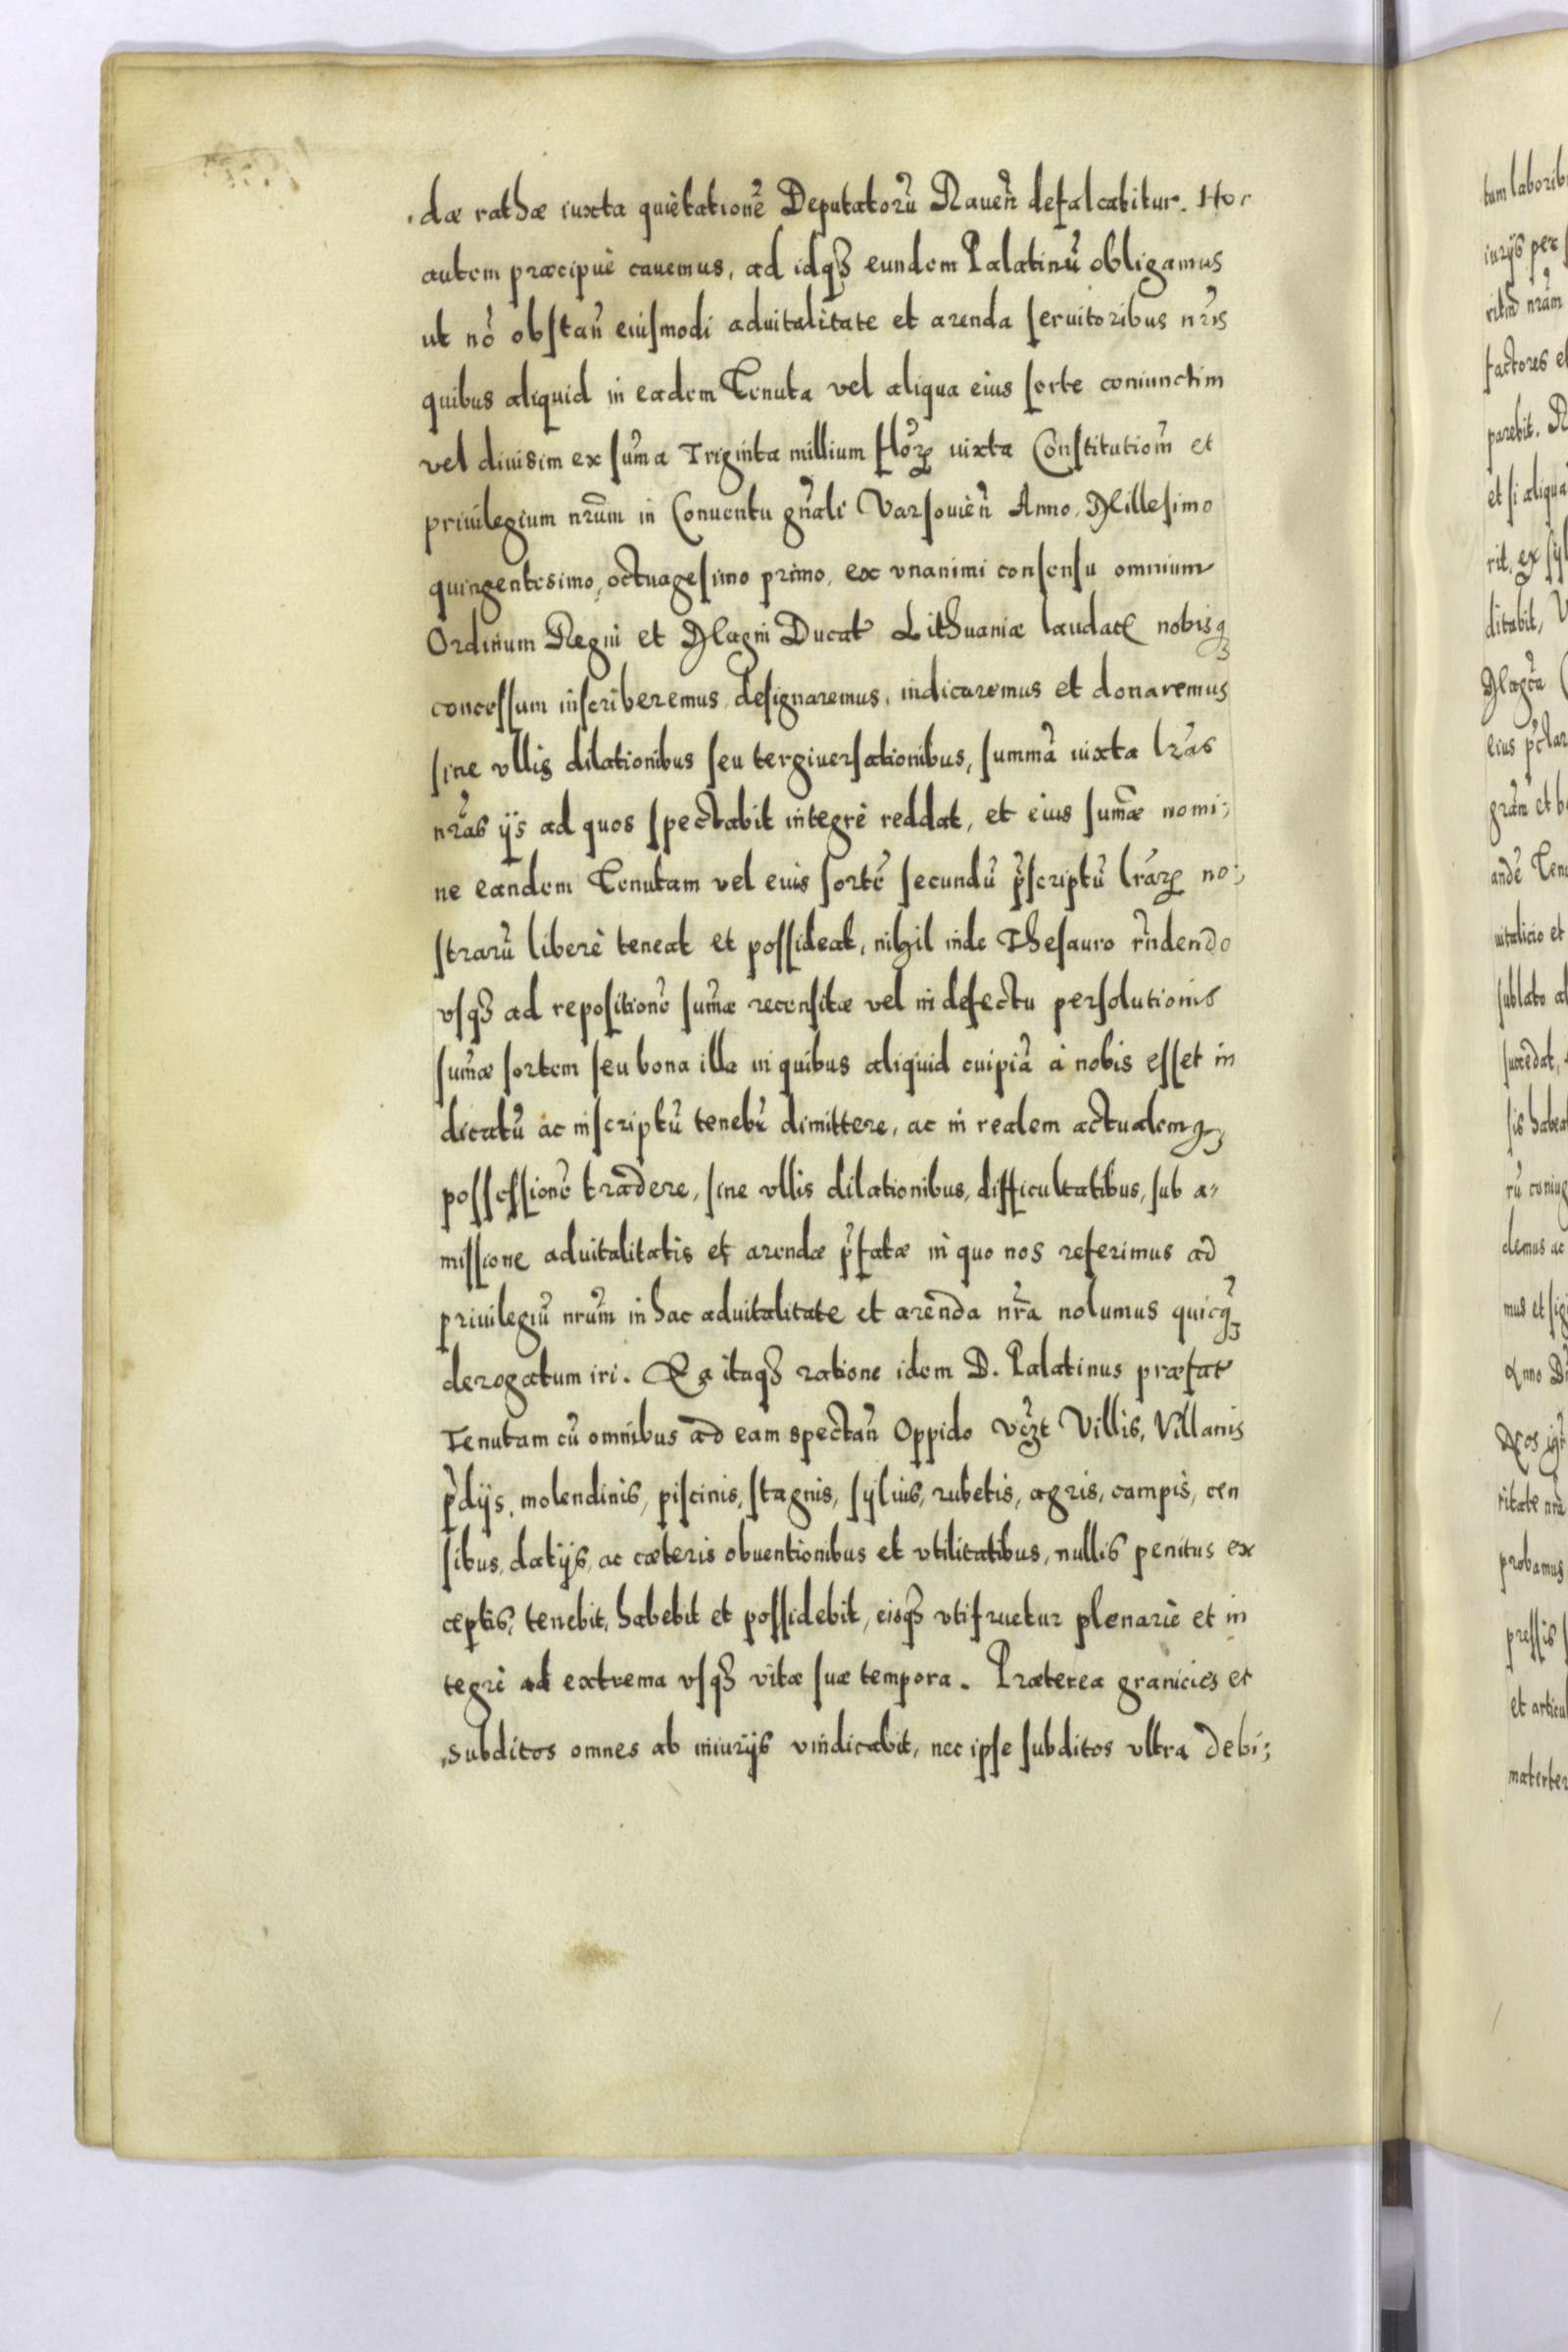 dæ rathæ iuxta quietationẽ Deputatorũ Rauen̄ defalcabitur. Hoc
autem præcipuè cauemus, ad idqꝫ eundem Palatinũ obligamus
ut nõ obstan̄ eiusmodi aduitalitate et arenda seruitoribus nr̃is
quibus aliquid in eadem Tenuta vel aliqua eius sorte coniunctim
vel diuisim ex sum̃a Triginta millium Flõrꝝ iuxta Constitutiom̃ et
priuilegium nrũm in Conuentu gñali Varsouien̄ Anno, Millesimo
quingentesimo, octuagesimo primo, ex vnanimi consensu omnium
Ordinum Regni et Magni Ducat Lithuaniæ laudatę nobisqꝫ
concessum inscriberemus, designaremus, indicaremus et donaremus
sine vllis dilationibus seu tergiuersationibus, summã iuxta lrãs
nrãs ijs ad quos spectabit integrè reddat, et eius sum̃æ nomi;
ne eandem Tenutam vel eius sortẽ secundũ p̃scriptũ lrãrꝝ no;
strarũ liberè teneat et possideat, nihil inde Thesauro rñdendo
vsqꝫ ad repositionẽ sum̃æ recensitæ vel in defectu persolutionis
sum̃æ sortem seu bona illa in quibus aliquid cuipiã à nobis esset in
dicatũ ac inscriptũ tenebr̃ dimittere, ac in realem actualemqꝫ
possessionẽ tradere, sine vllis dilationibus, difficultatibus, sub a-
missione aduitalitatis et arendæ p̃fatæ in quo nos referimus ad
priuilegiũ nrũm in hac aduitalitate et arenda nr̃a nolumus quicq̃ꝫ
derogatum iri. Ea itaqꝫ ratione idem D. Palatinus præfat
Tenutam cũ omnibus ad eam spectan̄ Oppido vcꝫt Villis, Villanis
p̃dijs, molendinis, piscinis, stagnis, syluis, rubetis, agris, campis, cen
sibus, datijs, ac cæteris obuentionibus et vtilitatibus, nullis penitus ex
ceptis, tenebit, habebit et possidebit, eisqꝫ vtifruetur plenariè et in
tegrè ad extrema vsqꝫ vitæ suæ tempora. Præterea granicies et
subditos omnes ab iniurijs vindicabit, nec ipse subditos vltra debi;
tum laborib
iurijs per
nrãm
factores et
parebit.
et si aliqua
rit, ex syl
ditabit,
eius
grãm et b
andẽ Ten
uitalicio et
sublato al
succedat,
sis habea
rũ coniug
demus ac
mus et sig
Anno D
ritate nrã
probamus
pressis
et articul
materter